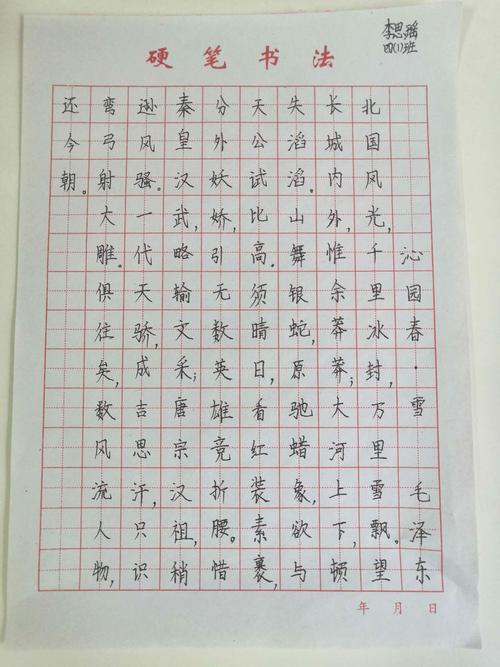 李思瑶
四(1)班
硬笔书法
沁园春·雪 毛泽东
北国风光，千里冰封，万里雪飘。望
长城内外，惟余莽莽；大河上下，顿
失滔滔。山舞银蛇，原驰蜡象，欲与
天公试比高。须晴日，看红装素裹，
分外妖娇，引无数英雄竞折腰。惜
秦皇汉武，略输文采；唐宗汉祖，稍
逊风骚。一代天骄，成吉思汗，只识
弯弓射大雕。俱往矣，数风流人物，
还今朝。
年 月 日